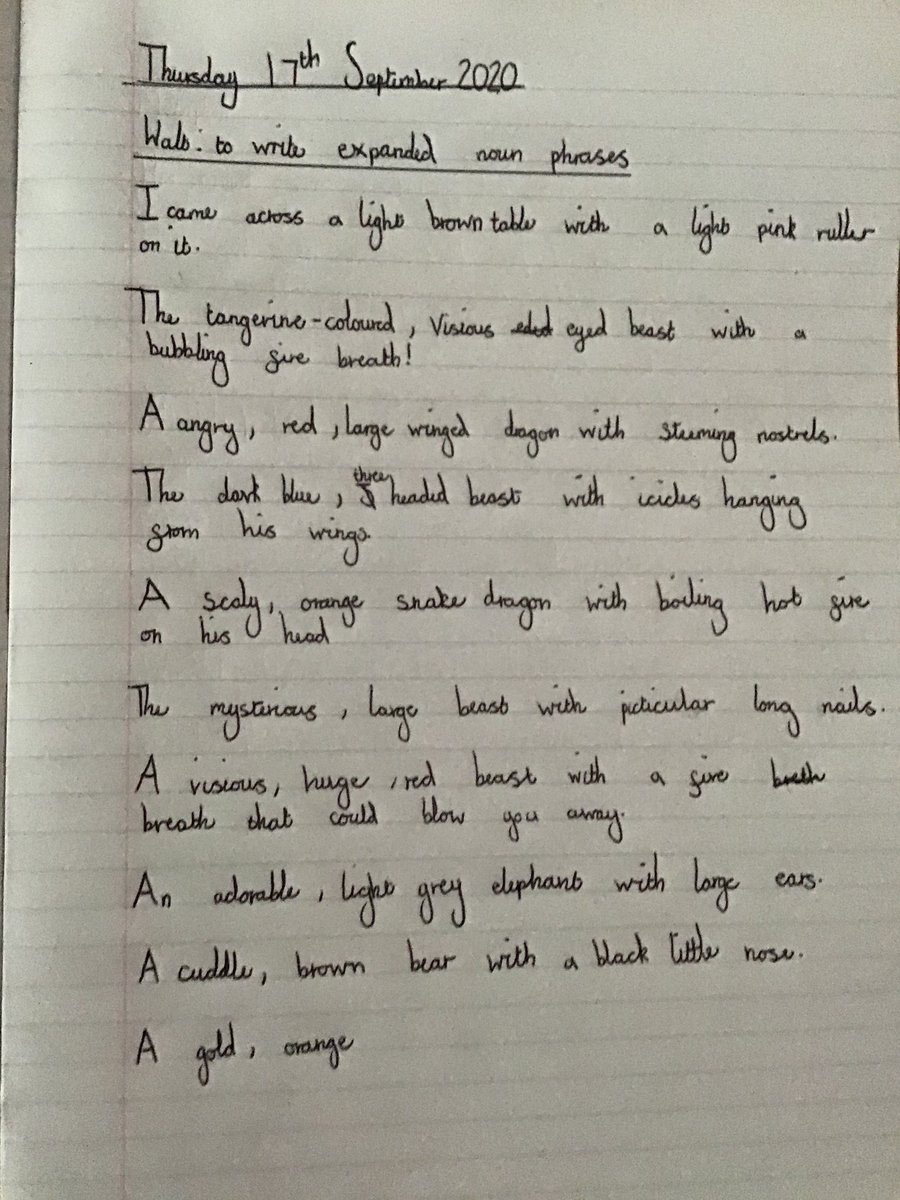 Thursday 17th September 2020
Walt: to write expanded noun phrases
I came across a light brown table with a light pink ruller
on it.
The tangerine-coloured, Visious eyed beast with a
bubbling fire breath!
A angry, red, large winged dragon with steeming nostrels.
The dark blue, three headed beast with icicles hanging
from his wings.
A scaly, orange snake dragon with boiling hot fire
on his head
The mysterious, large beast with picticular long nails.
A visious, huge, red beast with a fire breth
breath that could blow you away.
An adorable, light grey elephant with large ears.
A cuddle, brown bear with a black little nose.
A gold, orange